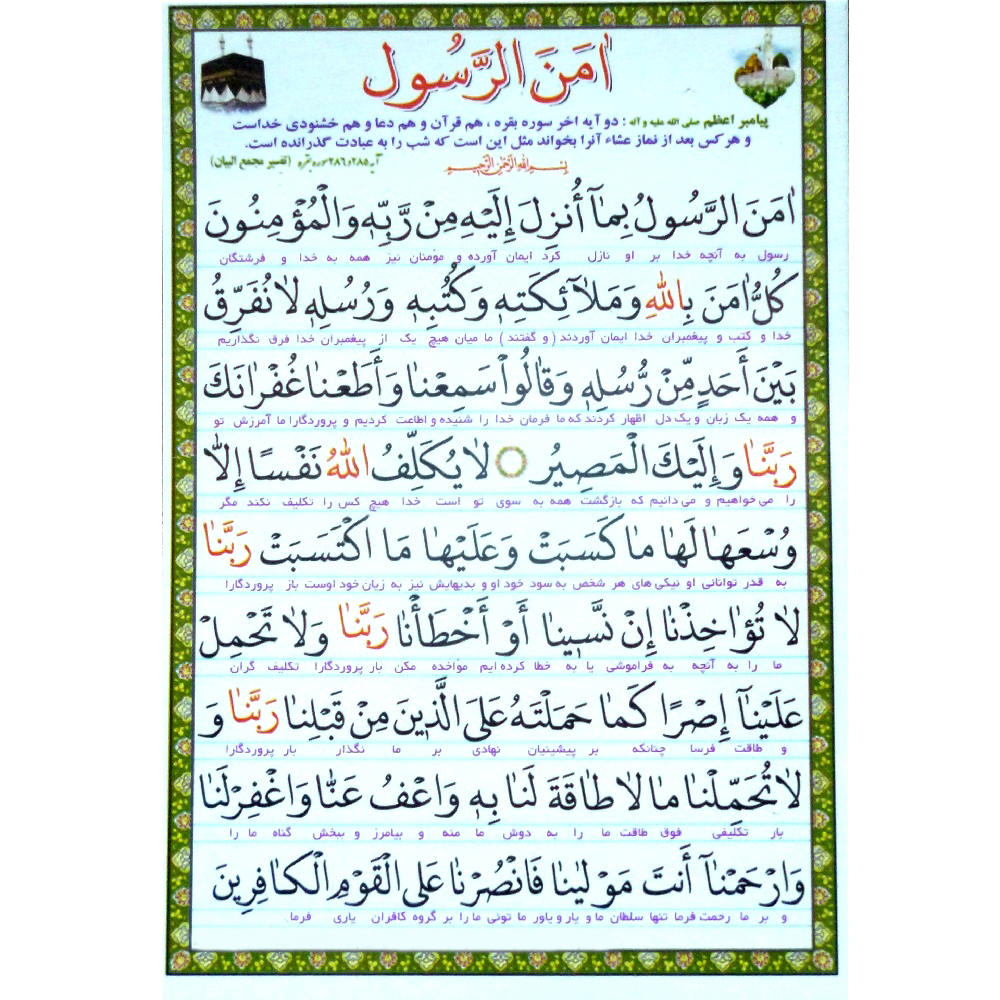 اٰمَنَ الرَّسُول
پیامبر اعظم صلی الله علیه و آله : دو آیه اخر سوره بقره ، هم قرآن و هم دعا و هم خشنودی خداست
و هر کس بعد از نماز عشاء آنرا بخواند مثل این است که شب را به عبادت گذرانده است.
آیه ۲۸۵و۲۸۶ سوره بقره (تفسیر مجمع البیان)
بِسْمِ اللهِ الرَّحْمٰنِ الرَّحِیمِ
اٰمَنَ الرَّسُولُ بِمآ أُنزِلَ إِلَیْهِ مِنْ رَّبِّهِ وَالْمُؤْمِنُونَ
رسول به آنچه خدا بر او نازل کرد ایمان آورده و مؤمنان نیز همه به خدا و فرشتگان
کُلُّ اٰمَنَ بِاللهِ وَمَلآئِکَتِهِ وَکُتُبِهِ وَرُسُلِهِ لانُفَرِّقُ
خدا و کتب و پیغمبران خدا ایمان آوردند ( و گفتند ) ما میان هیچ یک از پیغمبران خدا فرق نگذاریم
بَیْنَ أَحَدٍ مِّنْ رُّسُلِهِ وَقالُواْ سَمِعْنا وَأَطَعْنا غُفْرانَکَ
و همه یک زبان و یک دل اظهار کردند که ما فرمان خدا را شنیده و اطاعت کردیم و پروردگارا ما آمرزش تو
رَبَّنا وَإِلَیْکَ الْمَصِیرُ لا یُکَلِّفُ اللهُ نَفْسًا إِلّا
را می خواهیم و می دانیم که بازگشت همه به سوی تو است خدا هیچ کس را تکلیف نکند مگر
وُسْعَها لَها ما کَسَبَتْ وَعَلَیْها مَا اکْتَسَبَتْ رَبَّنا
به قدر توانائی او نیکی های هر شخص به سود خود او و بدیهایش نیز به زیان خود اوست بار پروردگارا
لا تُؤاخِذْنا إِنْ نَّسِینا أَوْ أَخْطَأْنا رَبَّنا وَلا تَحْمِلْ
ما را به آنچه به فراموشی یا به خطا کرده ایم مؤاخذه مکن بار پروردگارا تکلیف گران
عَلَیْنآ إِصْرًا کَما حَمَلْتَهُ عَلَی الَّذِینَ مِنْ قَبْلِنا رَبَّنا وَ
و طاقت فرسا چنانکه بر پیشینیان نهادی بر ما نگذار بار پروردگارا
لا تُحَمِّلْنا ما لا طاقَةَ لَنا بِهِ وَاعْفُ عَنّا وَاغْفِرْلَنا
بار تکلیفی فوق طاقت ما را به دوش ما منه و بیامرز و ببخش گناه ما را
وَارْحَمْنآ أَنتَ مَوْلینا فَانْصُرْنا عَلَی الْقَوْمِ الْکافِرِینَ
و بر ما رحمت فرما تنها سلطان ما و یار و یاور ما توئی ما را بر گروه کافران یاری فرما.